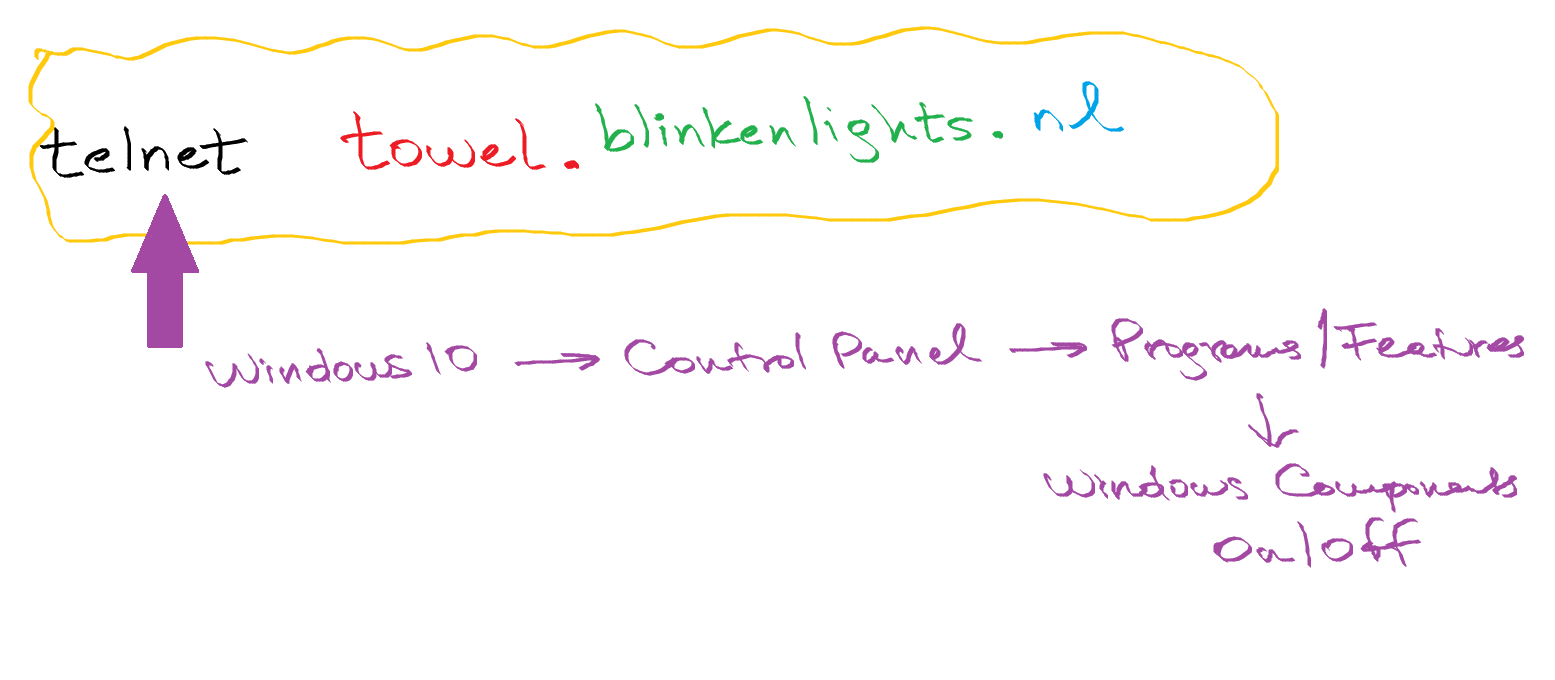 telnet towel.blinkenlights.nl
Windows 10 → Control Panel → Programs/Features
↓
Windows Components
On/Off